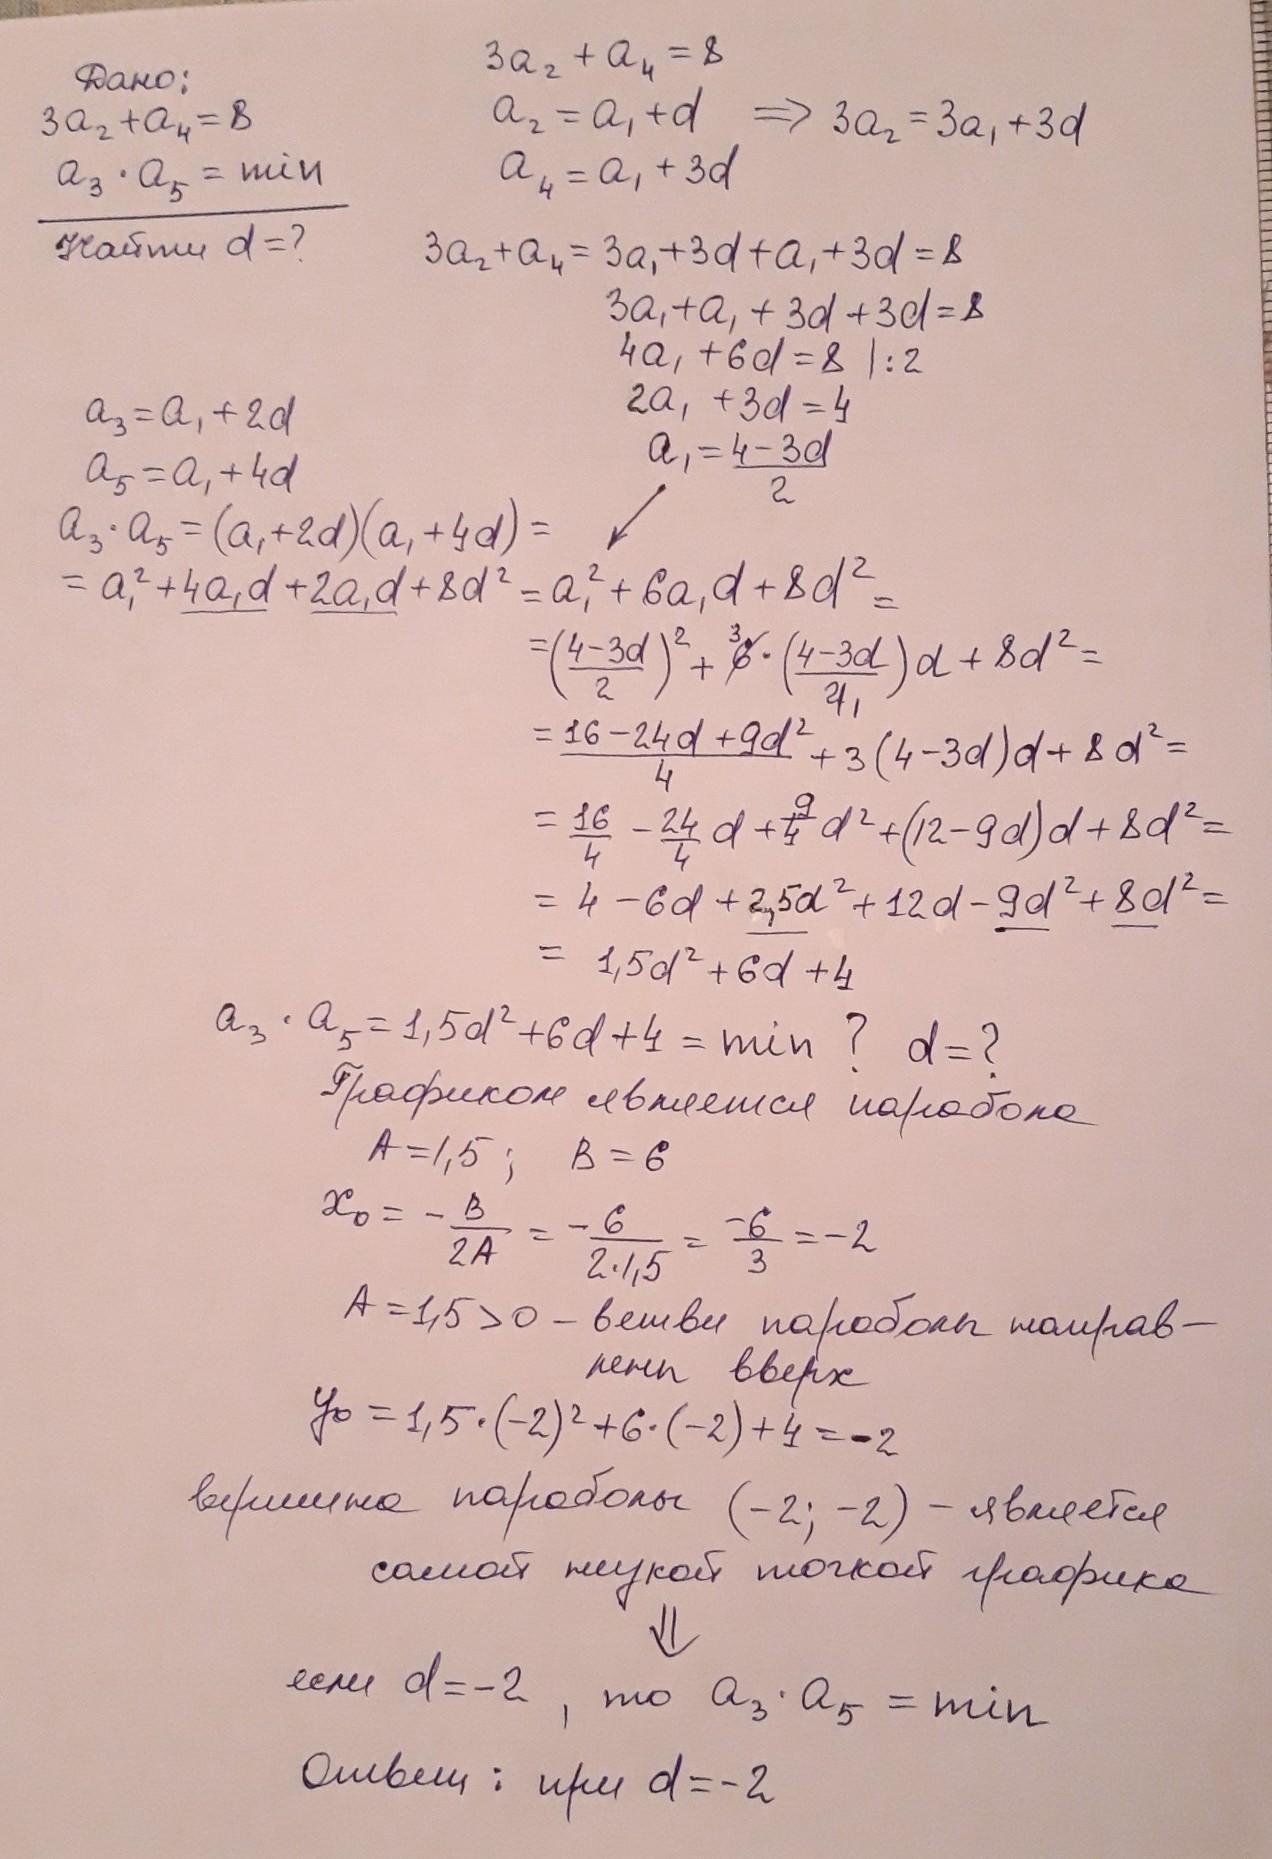 Дано:
3a₂+a₄=8
a₃·a₅=min
Найти d=?
3a₂+a₄=8
a₂=a₁+d ⇒ 3a₂=3a₁+3d
a₄=a₁+3d
3a₂+a₄=3a₁+3d+a₁+3d=8
3a₁+a₁+3d+3d=8
4a₁+6d=8 |:2
2a₁+3d=4
a₁=(4-3d)/2
a₃=a₁+2d
a₅=a₁+4d
a₃·a₅=(a₁+2d)(a₁+4d)=
=a₁²+4a₁d+2a₁d+8d²=a₁²+6a₁d+8d²=
=((4-3d)/2)²+6³·((4-3d)/2₁)d+8d²=
=(16-24d+9d²)/4+3(4-3d)d+8d²=
=16/4-24/4d+9/4d²+(12-9d)d+8d²=
=4-6d+2,5d²+12d-9d²+8d²=
=1,5d²+6d+4
a₃·a₅=1,5d²+6d+4=min? d=?
Графиком является парабола
A=1,5; B=6
x₀=-B/2A=-6/2·1,5=-6/3=-2
A=1,5>0-ветви параболы направ-
лены вверх
y₀=1,5·(-2)²+6·(-2)+4=-2
вершина параболы (-2;-2)-является
самой низкой точкой графика
⇓
если d=-2, то a₃·a₅=min
Ответ: при d=-2